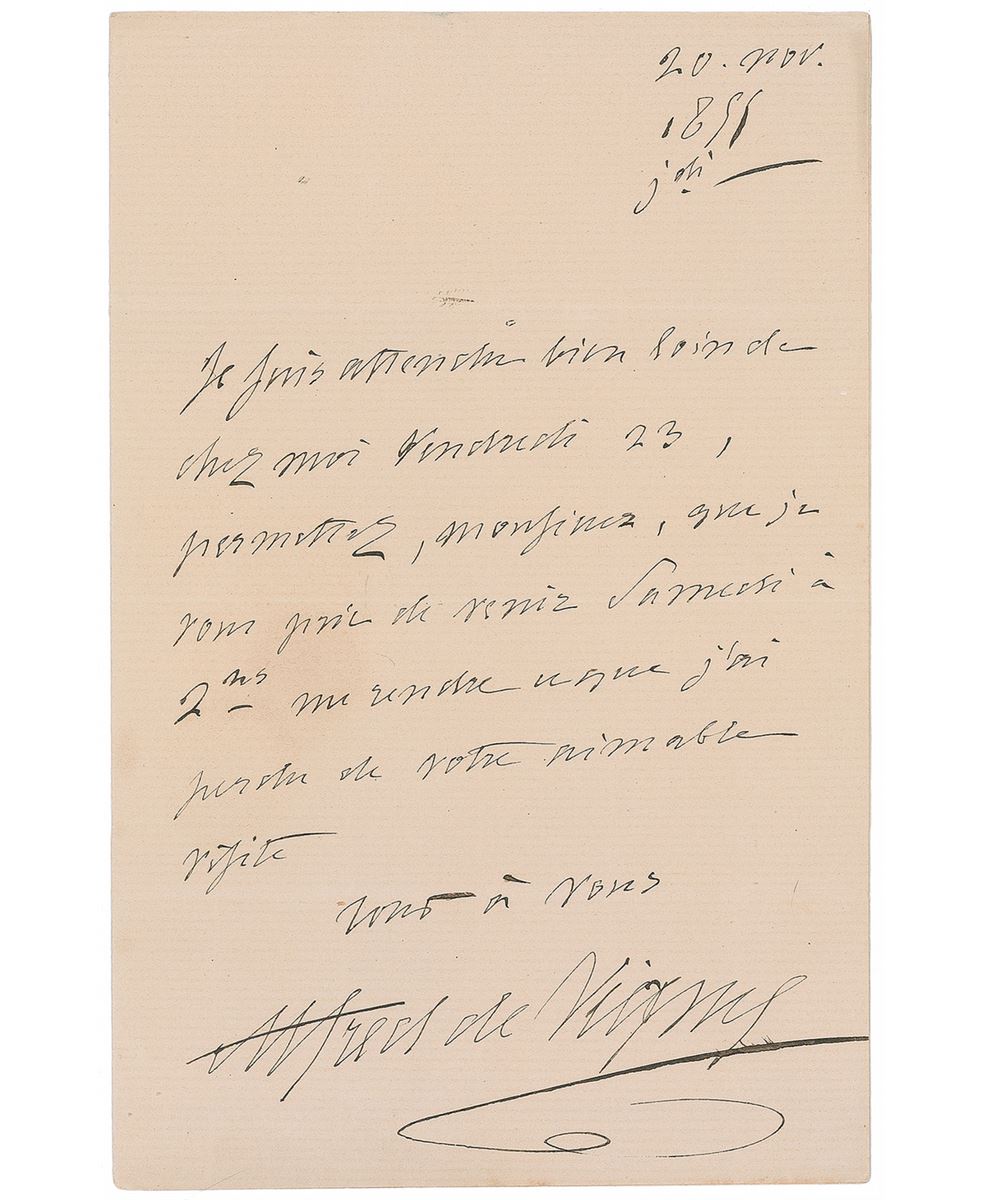 20. nov.
1855
jdi
Je suis attendu bien loin de
chez moi Vendredi 23,
permettez, monsieur, que je
vous prie de venir Samedi à
2 hrs me rendre ce que j'ai
perdu de votre aimable
visite
tout à vous
Alfred de Vigny